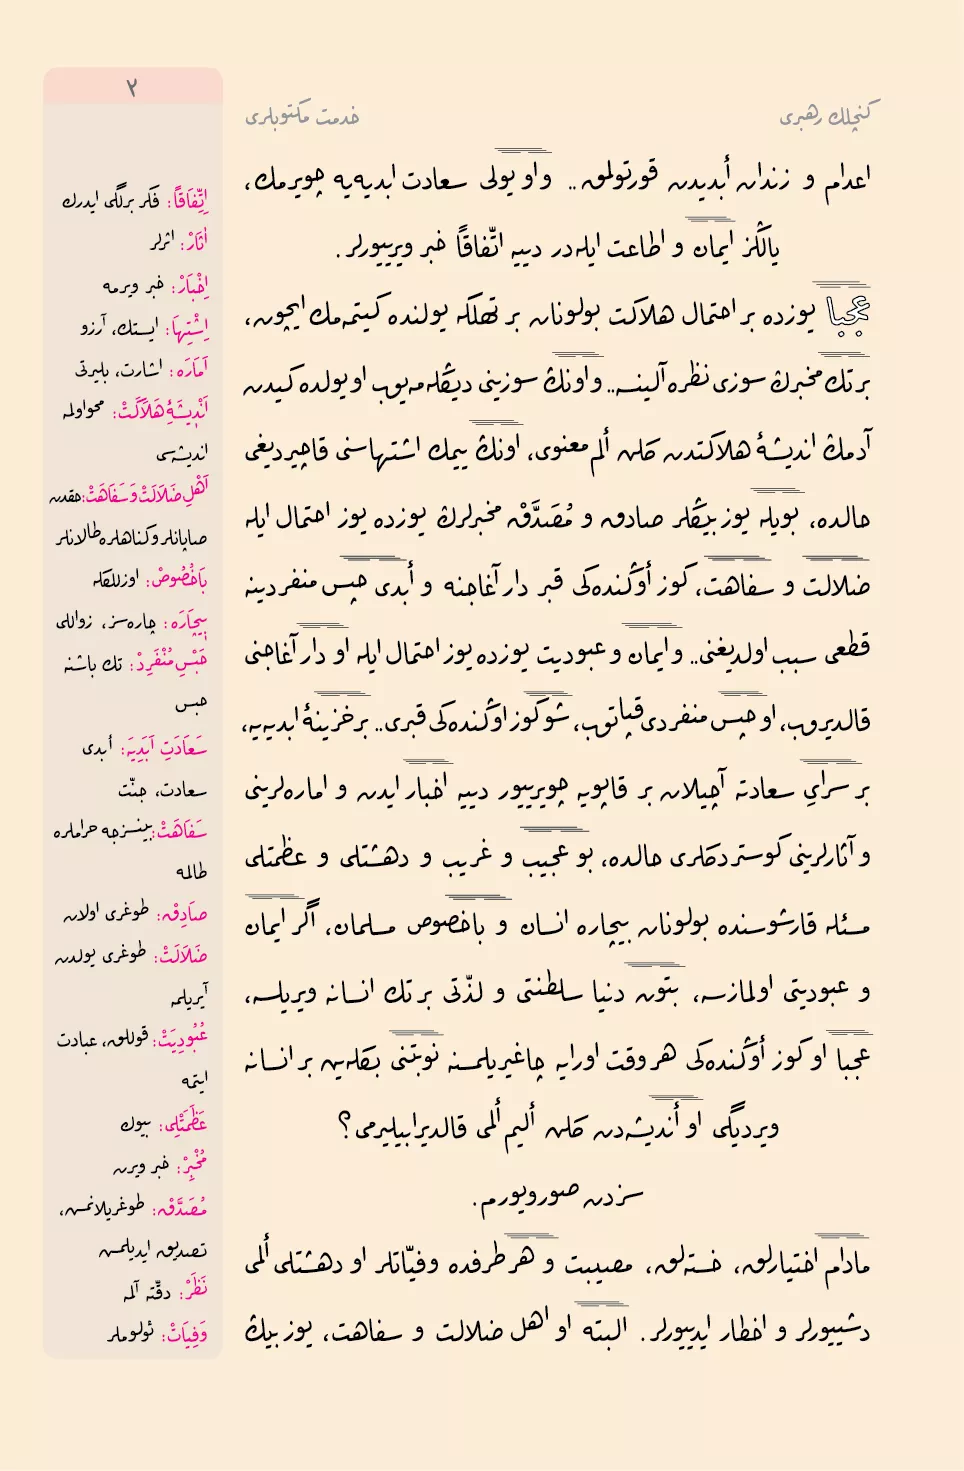 ٢
كنچلك رهبرى
خدمت مكتوبلرى
اعدام و زندان أبديدن قورتولمق .. واو يولى سعادت ابديه‌يه چويرمك،
يالڭز ايمان و اطاعت ايله‌در دييه اتّفاقاً خبر ويرييورلر .
عجبا يوزده بر احتمال هلاكت بولونان بر تهلكه يولنده كيتمه‌مك ايچون،
بر تك مخبرك سوزى نظره آلينسه.. و اونڭ سوزينى ديڭله‌مه‌يوب او يولده كيدن
آدمك انديشۀ هلاكتدن كلن ألم معنوى، اونڭ ييمك اشتهاسنى قاچيرديغى
حالده، بويله يوز بيڭلر صادق و مُصَدَّق مخبرلرڭ يوزده يوز احتمال ايله
ضلالت و سفاهت، كوز أوڭنده‌كى قبر دار آغاجنه و أبدى حبس منفردينه
قطعى سبب اولديغنى.. و ايمان و عبوديت يوزده يوز احتمال ايله او دار آغاجنى
قالديروب، او حبس منفردى قپاتوب، شو كوز اوڭنده‌كى قبرى.. بر خزينۀ ابديه‌يه،
بر سراي سعادته آچيلان بر قاپويه چويرييور دييه اخبار ايدن و اماره‌لرينى
و آثارلرينى كوستردكلرى حالده، بو عجيب و غريب و دهشتلى و عظمتلى
مسئله قارشوسنده بولونان بيچاره انسان و باخصوص مسلمان، أڭر ايمان
و عبوديتى اولمازسه، بتون دنيا سلطنتى و لذّتى بر تك انسانه ويريلسه،
عجبا او كوز أوڭنده‌كى هر وقت اورايه چاغيريلمسنه نوبتنى بكله‌ين بر انسانه
ويرديگى او أنديشه‌دن كلن أليم ألمى قالديرابيليرمى؟
سزدن صورويورم .
مادام اختيارلق، خسته‌لق، مصيبت و هر طرفده وفيّاتلر او دهشتلى ألمى
دشييورلر و اخطار ايدييورلر . البته او اهل ضلالت و سفاهت، يوز بيڭ
اِتِّفَاقاً: فكر برلگى ايدرك
اٰثَارْ: اثرلر
اِخْبَارْ: خبر ويرمه
اِشْتِهَا: ايستك، آرزو
اَمَارَه: اشارت، بليرتى
اَنْدِيشَۀِ هَلَاكَتْ: محو اولمه
انديشه‌سى
اَهْلِ ضَلَالَتْ وَ سَفَاهَتْ: حقدن
صاپانلر و كناهلره طالانلر
بَاخُصُوصْ: اوزللكله
بِيچَارَه: چاره‌سز، زواللى
حَبْسِ مُنْفَرِدْ: تك باشنه
حبس
سَعَادَتِ اَبَدِيَه: أبدى
سعادت، جنّت
سَفَاهَتْ: بيلنسزجه حراملره
طالمه
صَادِقْ: طوغرى اولان
ضَلَالَتْ: طوغرى يولدن
آيريلمه
عُبُودِيَتْ: قوللق، عبادت
ايتمه
عَظَمَتْلِى: بيوك
مُخْبِرْ: خبر ويرن
مُصَدَّقْ: طوغريلانمش،
تصديق ايديلمش
نَظَرْ: دقّته آلمه
وَفِيَاتْ: ئولوملر